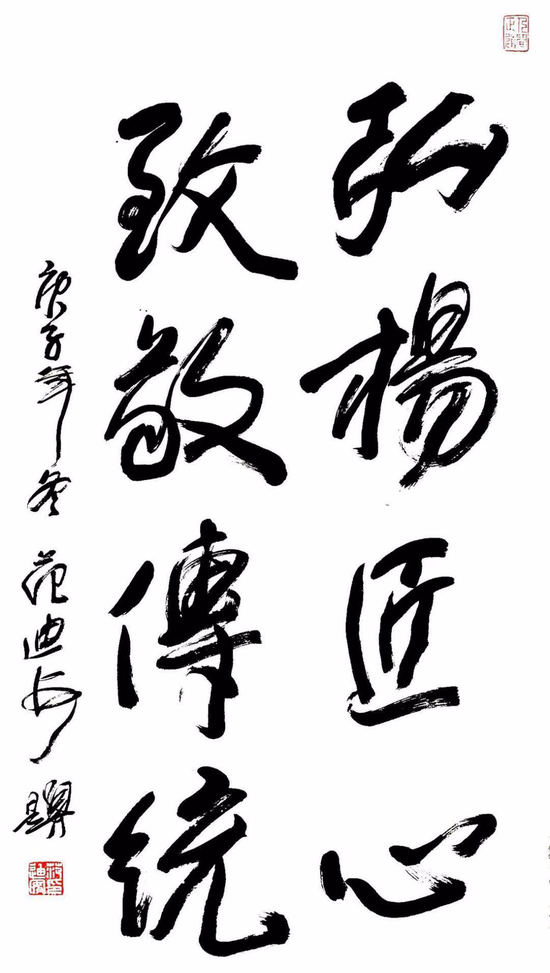 弘揚匠心
致敬傳統
庚子年冬 范迪安 題